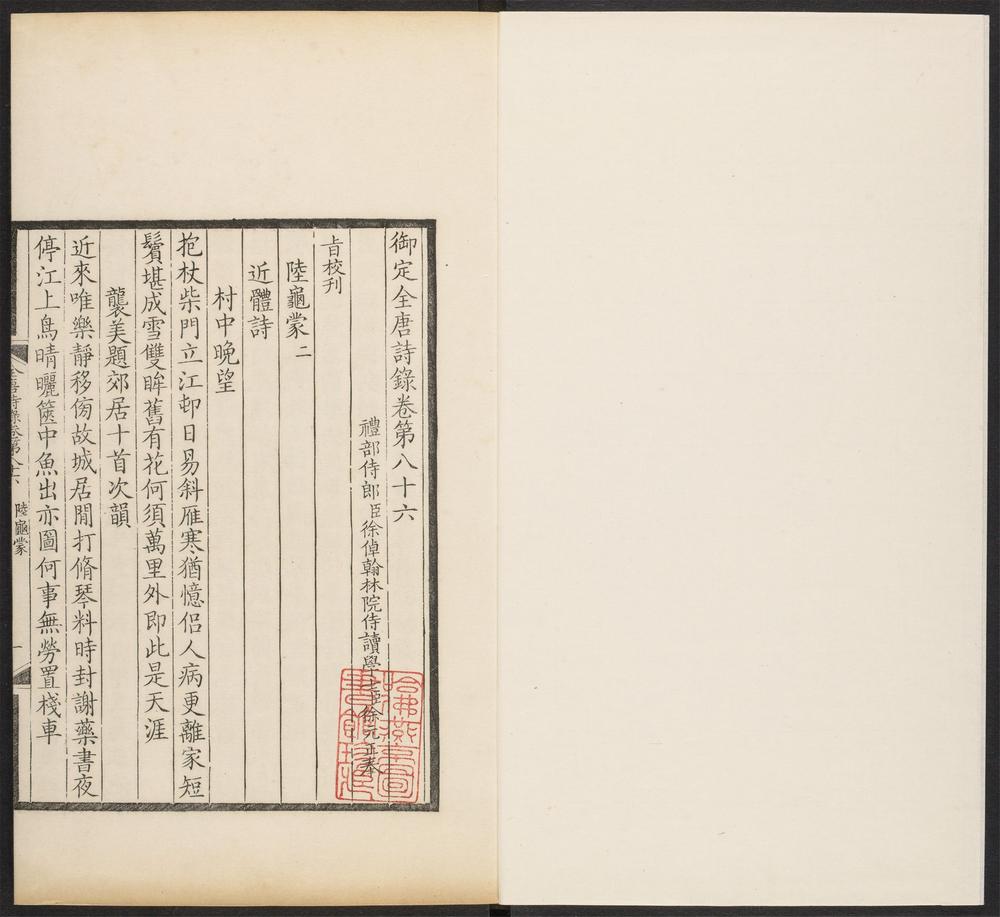 御定全唐詩錄卷第八十六
禮部侍郎臣徐倬翰林院侍讀學士臣徐元正奉
旨校刊
陸龜蒙二
近體詩
村中晚望
抱杖柴門立江邨日易斜雁寒猶憶侶人病更離家短
鬢堪成雪雙眸舊有花何須萬里外即此是天涯
襲美題郊居十首次韻
近來唯樂靜移傍故城居閒打脩琴料時封謝藥書夜
停江上鳥晴曬篋中魚出亦圖何事無勞置棧車
全唐詩錄卷第八十六
陸龜蒙
一
哈佛燕京圖
書館珍藏